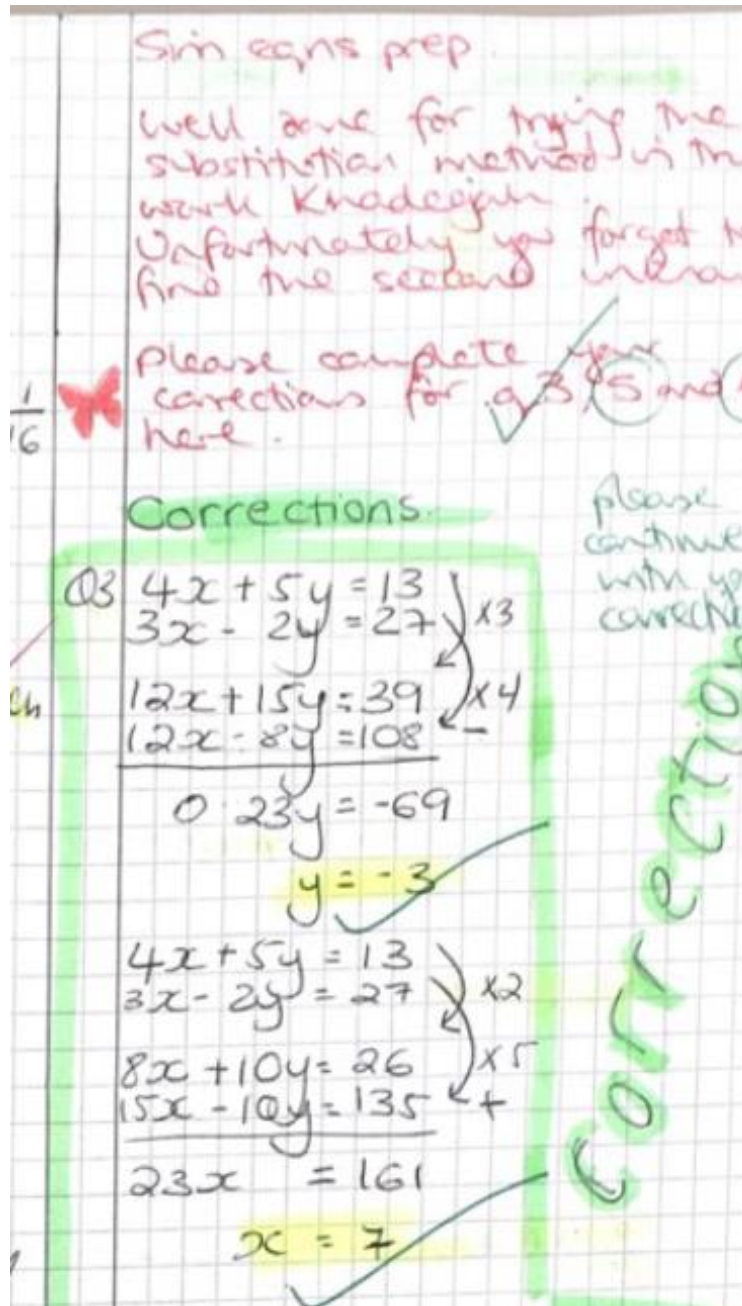 Sim eqns prep
Well done for trying the
substitution method in
work Khadeejah.
Unfortunately you forgot
find the second
Please complete your
corrections for q 3, 5 and
here.
1
16
Corrections
please
continue
with
Q3 4x + 5y = 13
3x - 2y = 27 x3
12x + 15y = 39 x4
12x - 8y = 108 -
0 23y = -69
y = -3
4x + 5y = 13
3x - 2y = 27 x2
8x + 10y = 26 x5
15x - 10y = 135 +
23x = 161
x = 7